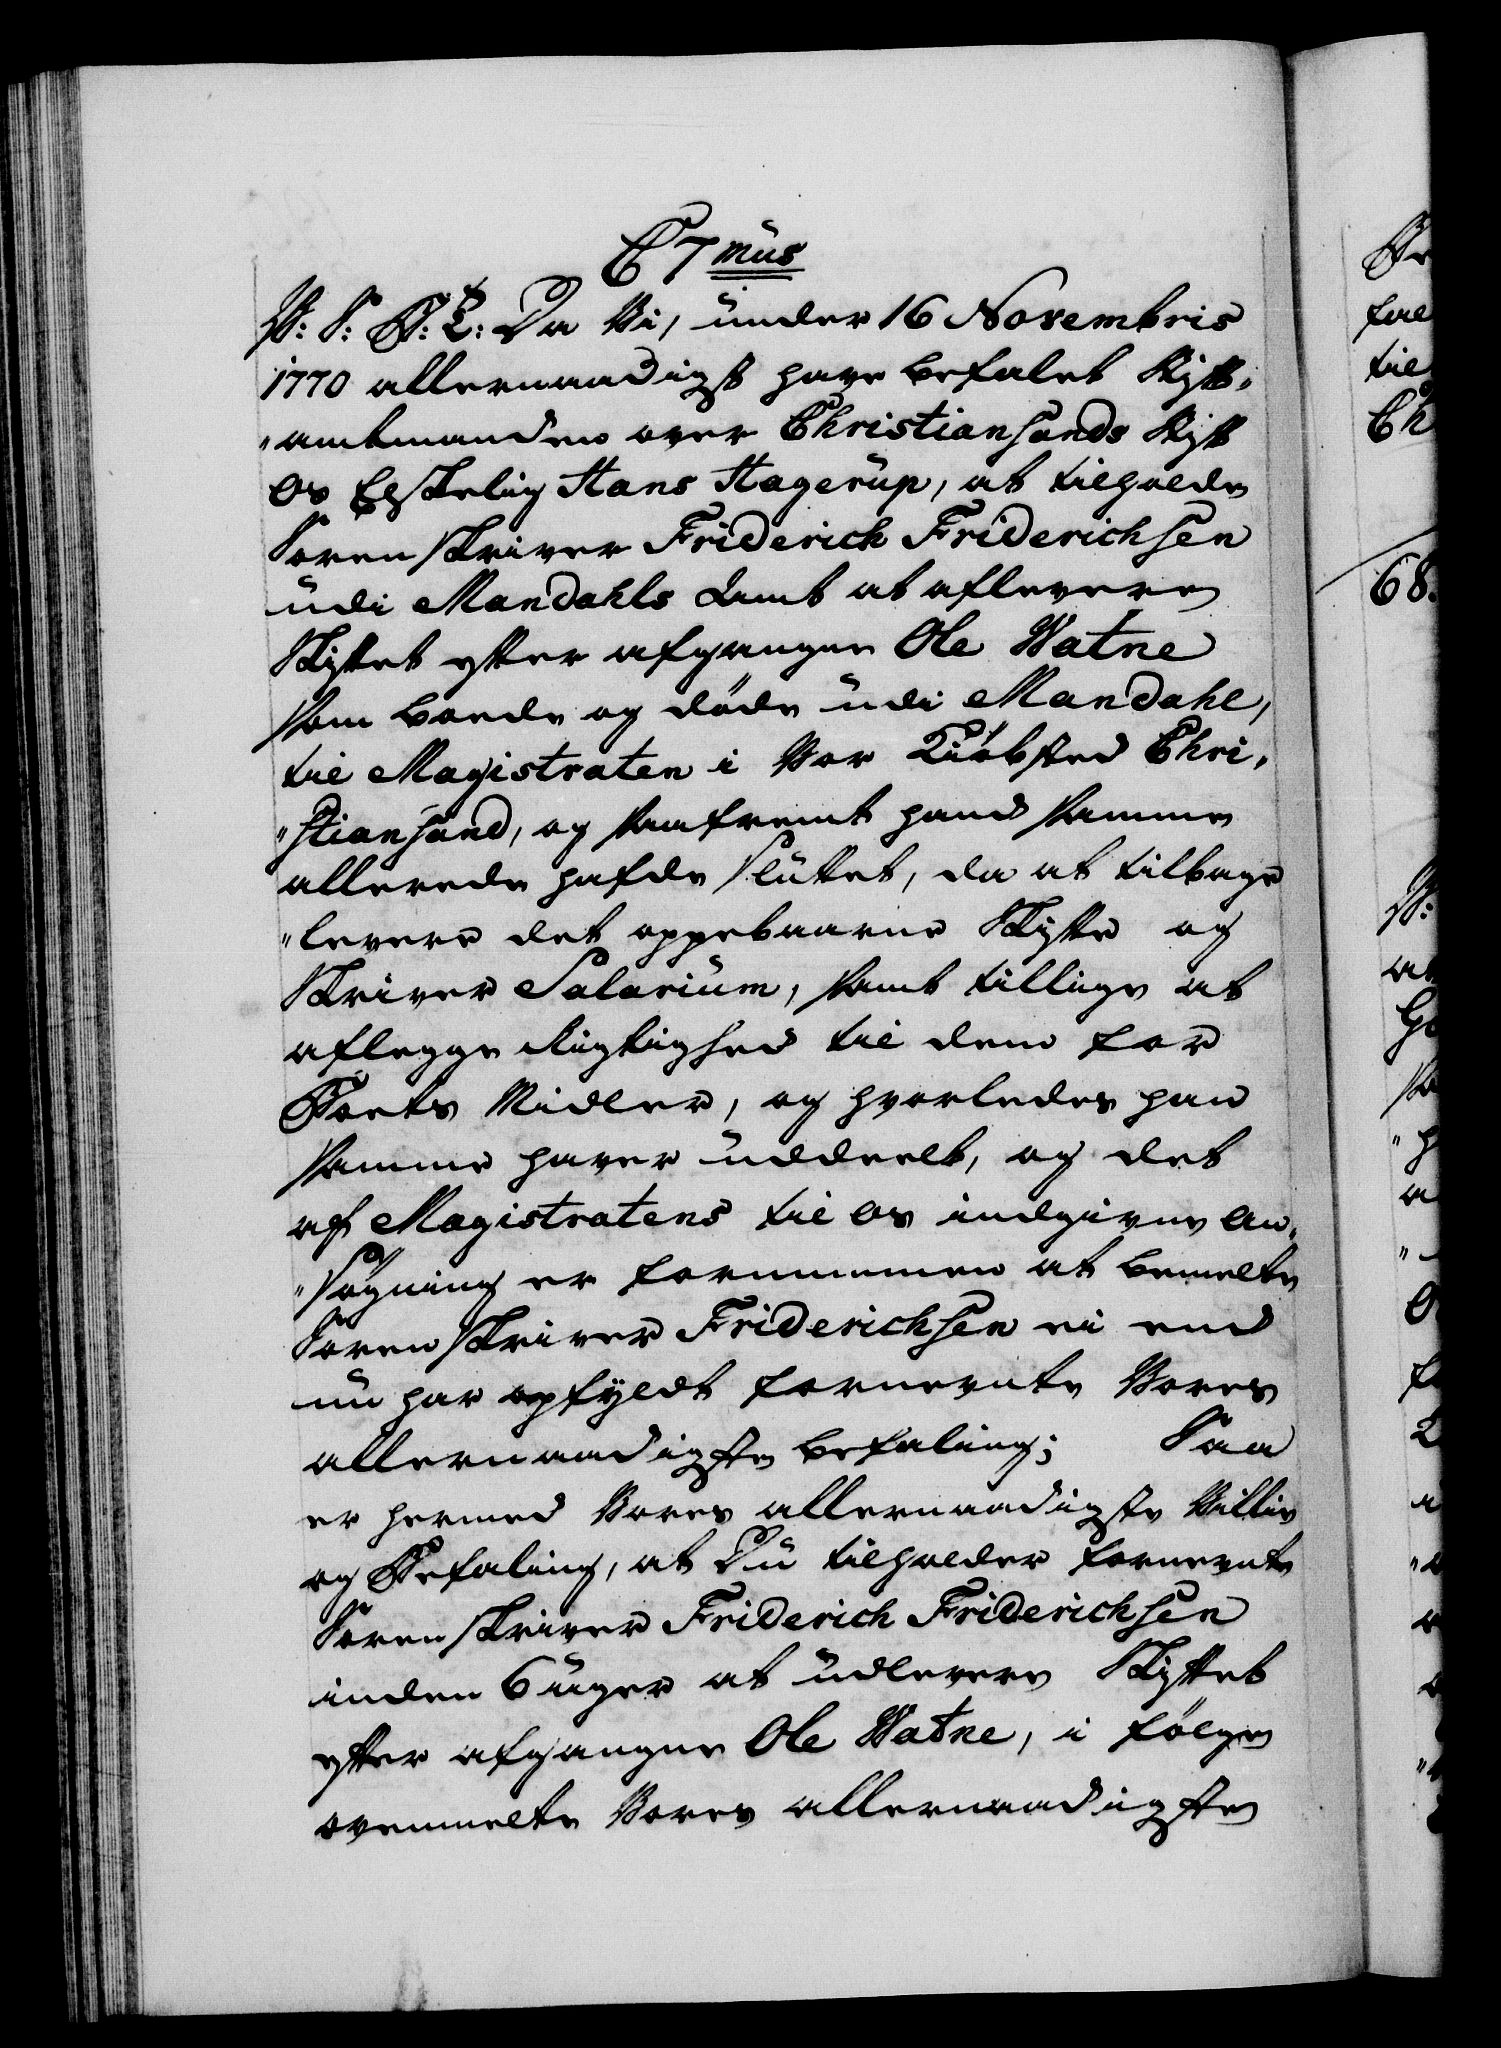 C 7mus
W: S: G: T: Da Vi, under 16 Novembris
1770 allernaadigst have befalet Stift-
"amtmanden over Christiansands Stift
Os Elskelig Hans Hagerup, at tilholde
Sorenskriver Friderich Friderichsen
udi Mandahls Amt at aflevere
Skiftet efter afgangne Ole Watne
som boede og döde udi Mandahl,
til Magistraten i Vor Kiöbsted Chri-
"stiansand, og saafremt hand samme
allerede hafde sluttet, da at tilbage
"levere det oppebaarne Skifte og
Skriver Salarium, samt tillige at
aflegge Rigtighed til dem for
Boets Midler, og hvorledes han
samme haver uddeelt, og det
af Magistratens til Os indgivne An-
"søgning er fornummen at bemelte
Sorenskriver Friderichsen ei end
nu har opfyldt fornevnte Vores
allernaadigste befaling; Saa
er hermed Vores allernaadigste Villie
og Befaling, at Du tilholder fornevnte
Sorenskriver Friderich Friderichsen
inden 6 uger at udlevere Skiftet
efter afgangne Ole Watne, i fölge
ovenmelte Vores allernaadigste
68.